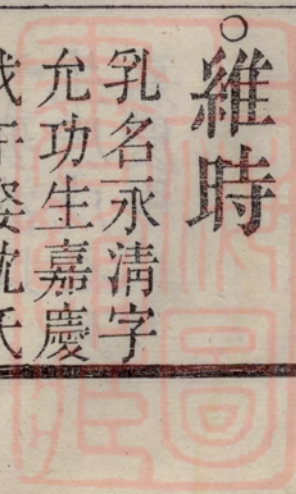 ○維時
乳名永清字
允功生嘉慶
娶沈氏